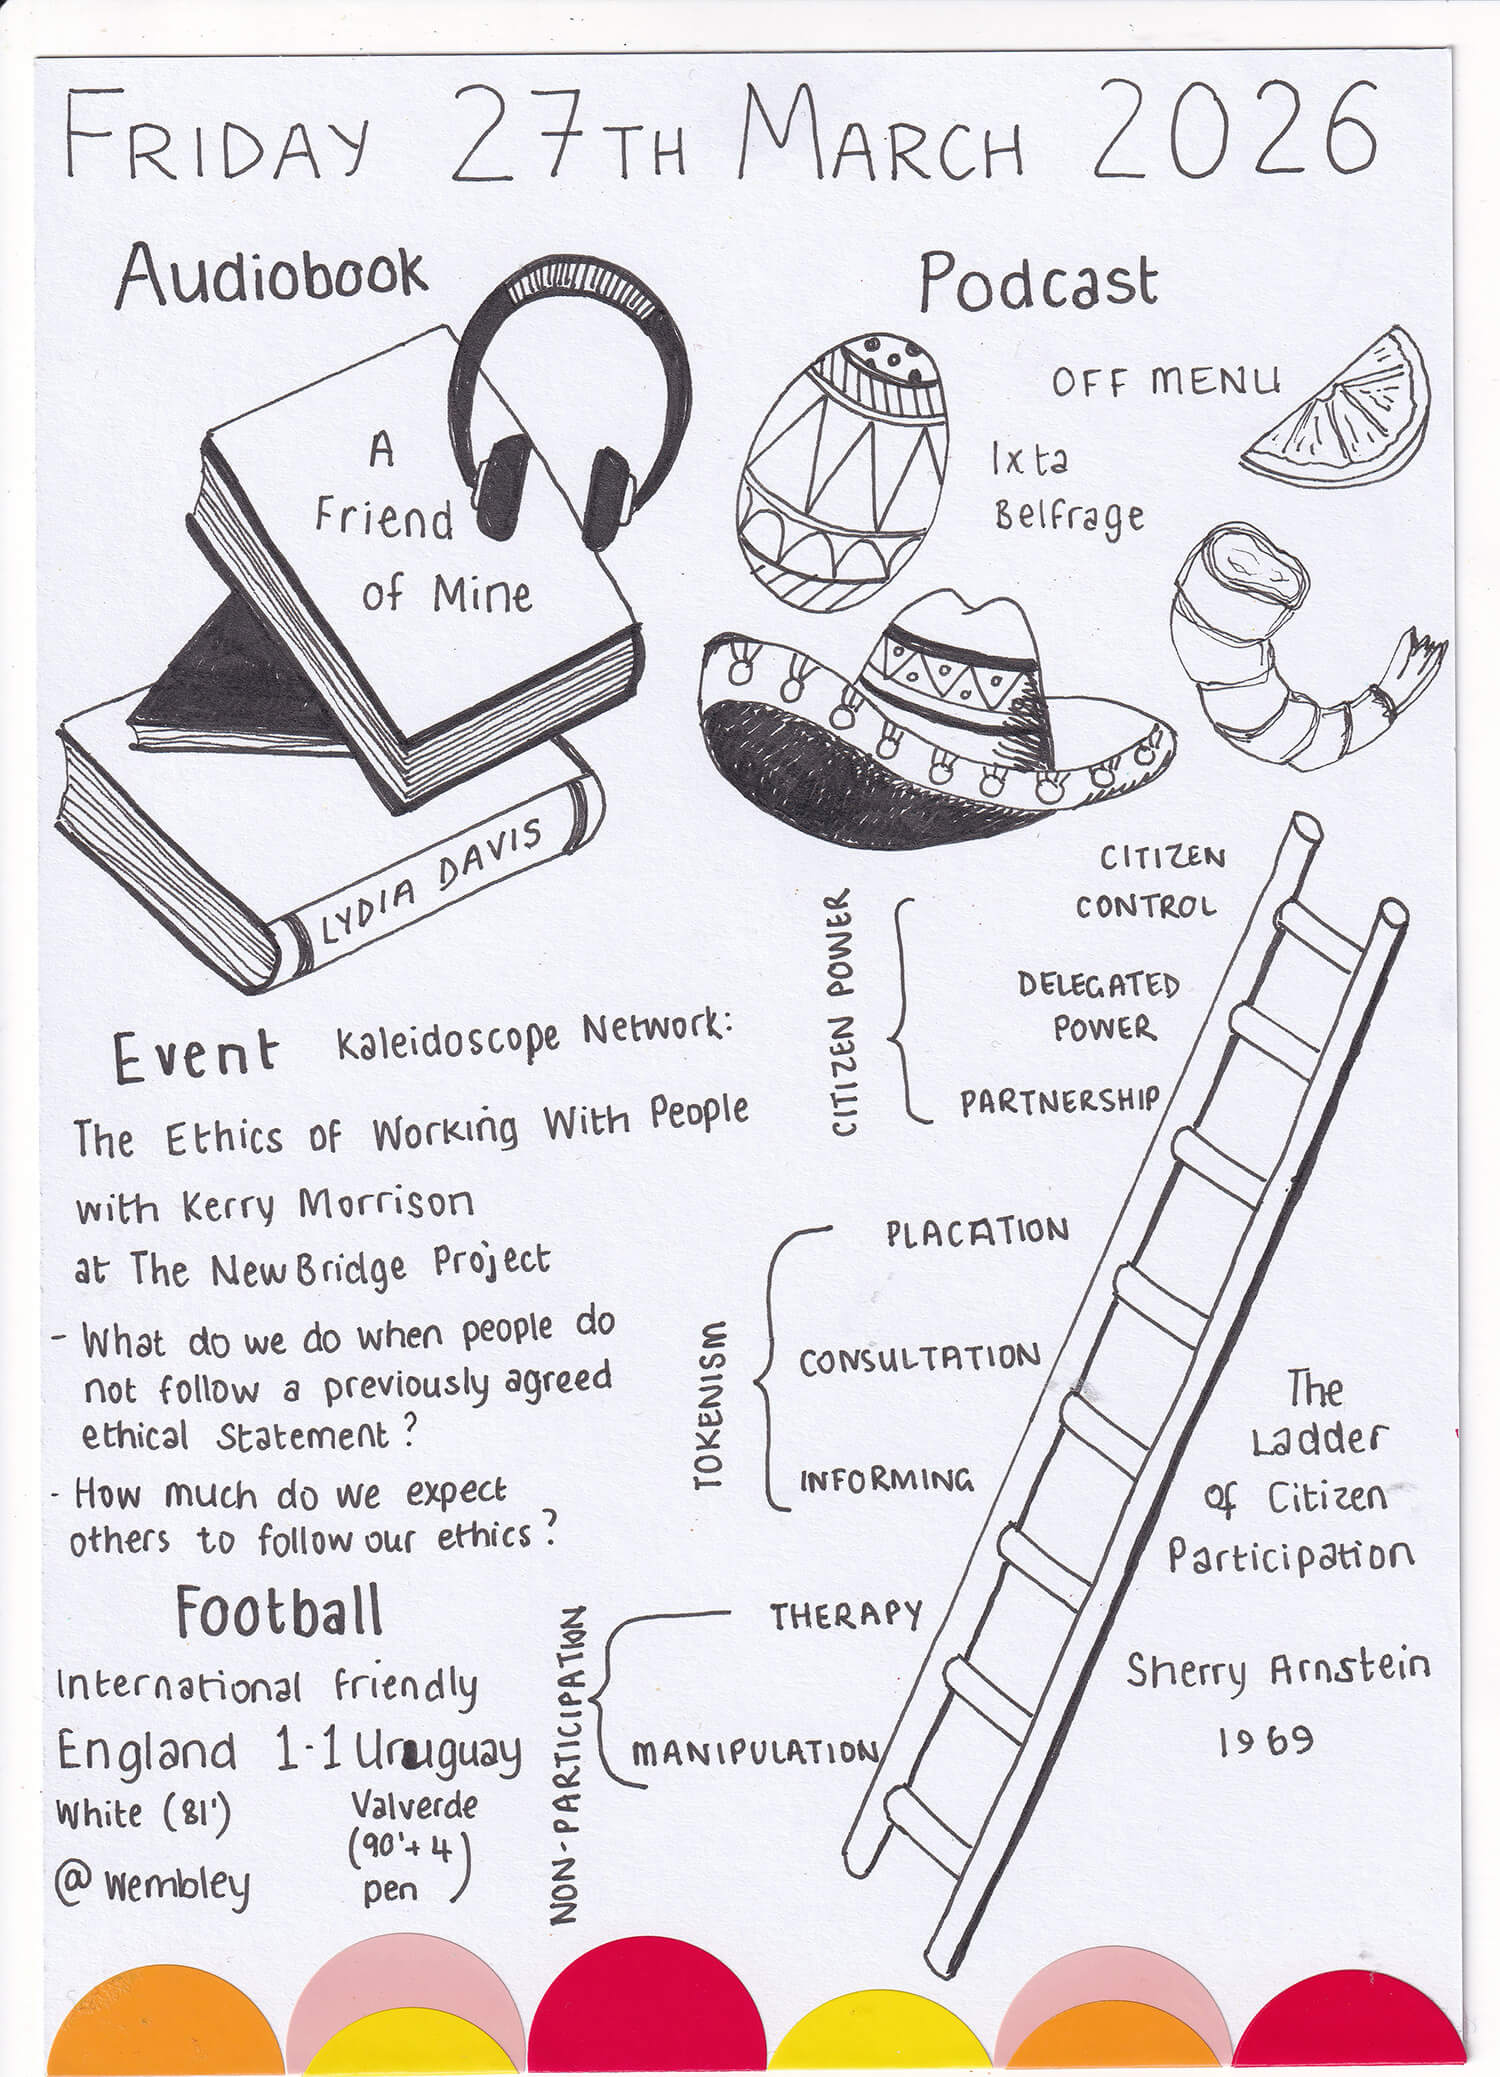 FRIDAY 27TH MARCH 2026
Audiobook
A
Friend
of Mine
LYDIA DAVIS
Podcast
OFF MENU
Ixta
Belfrage
Event Kaleidoscope Network:
The Ethics of Working With People
with Kerry Morrison
at The NewBridge Project
- What do we do when people do
not follow a previously agreed
ethical statement?
- How much do we expect
others to follow our ethics?
Football
International friendly
England 1-1 Uruguay
White (81') Valverde
(90'+4
@ Wembley pen)
CITIZEN POWER
CITIZEN
CONTROL
DELEGATED
POWER
PARTNERSHIP
TOKENISM
PLACATION
CONSULTATION
INFORMING
NON-PARTICIPATION
THERAPY
MANIPULATION
The
Ladder
of Citizen
Participation
Sherry Arnstein
1969